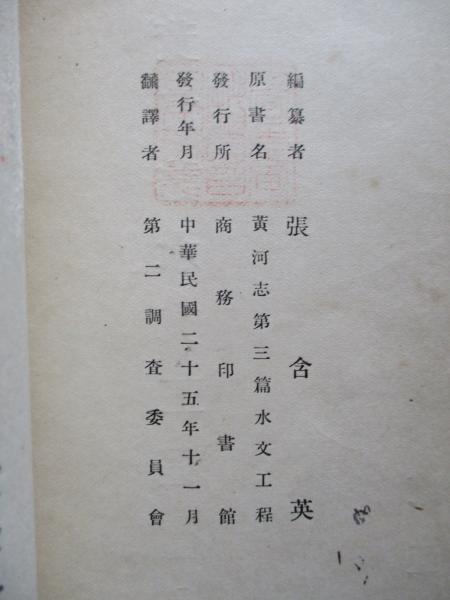 編纂者 張含英
原書名 黃河志第三篇水文工程
發行所 商務印書館
發行年月 中華民國二十五年十一月
飜譯者 第二調査委員會